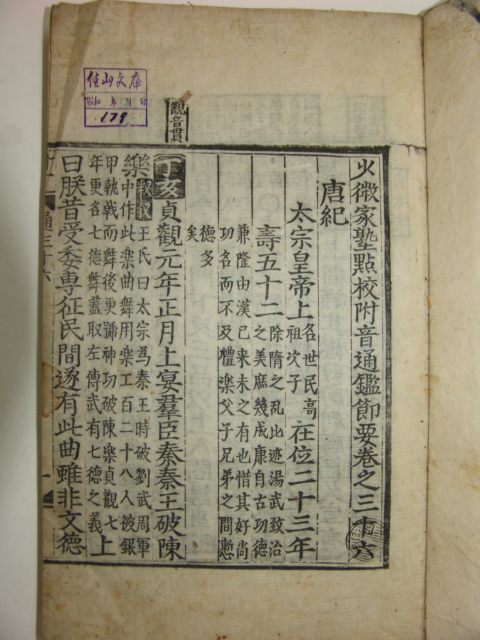 佳山文庫
昭和 年 月 日
179
觀音貫
少微家塾點校附音通鑑節要卷之三十六
唐紀
太宗皇帝上 名世民高祖次子 在位二十三年
壽五十二 除隋之亂比迹湯武致治
之美庶幾成康自古功德
兼隆由漢已來未之有也惜其好尚
功名而不及禮樂父子兄弟之間慙
德多
矣
丁亥 貞觀元年正月上宴羣臣奏秦王破陳
樂 釋義 王氏曰太宗爲秦王時破劉武周軍
中作此樂曲舞用樂工百二十八人被銀
甲執戟而舞後更號神功破陳樂貞觀七
年更名七德舞蓋取左傳武有七德之義 上
曰朕昔受委專征民間遂有此曲雖非文德
通三十六